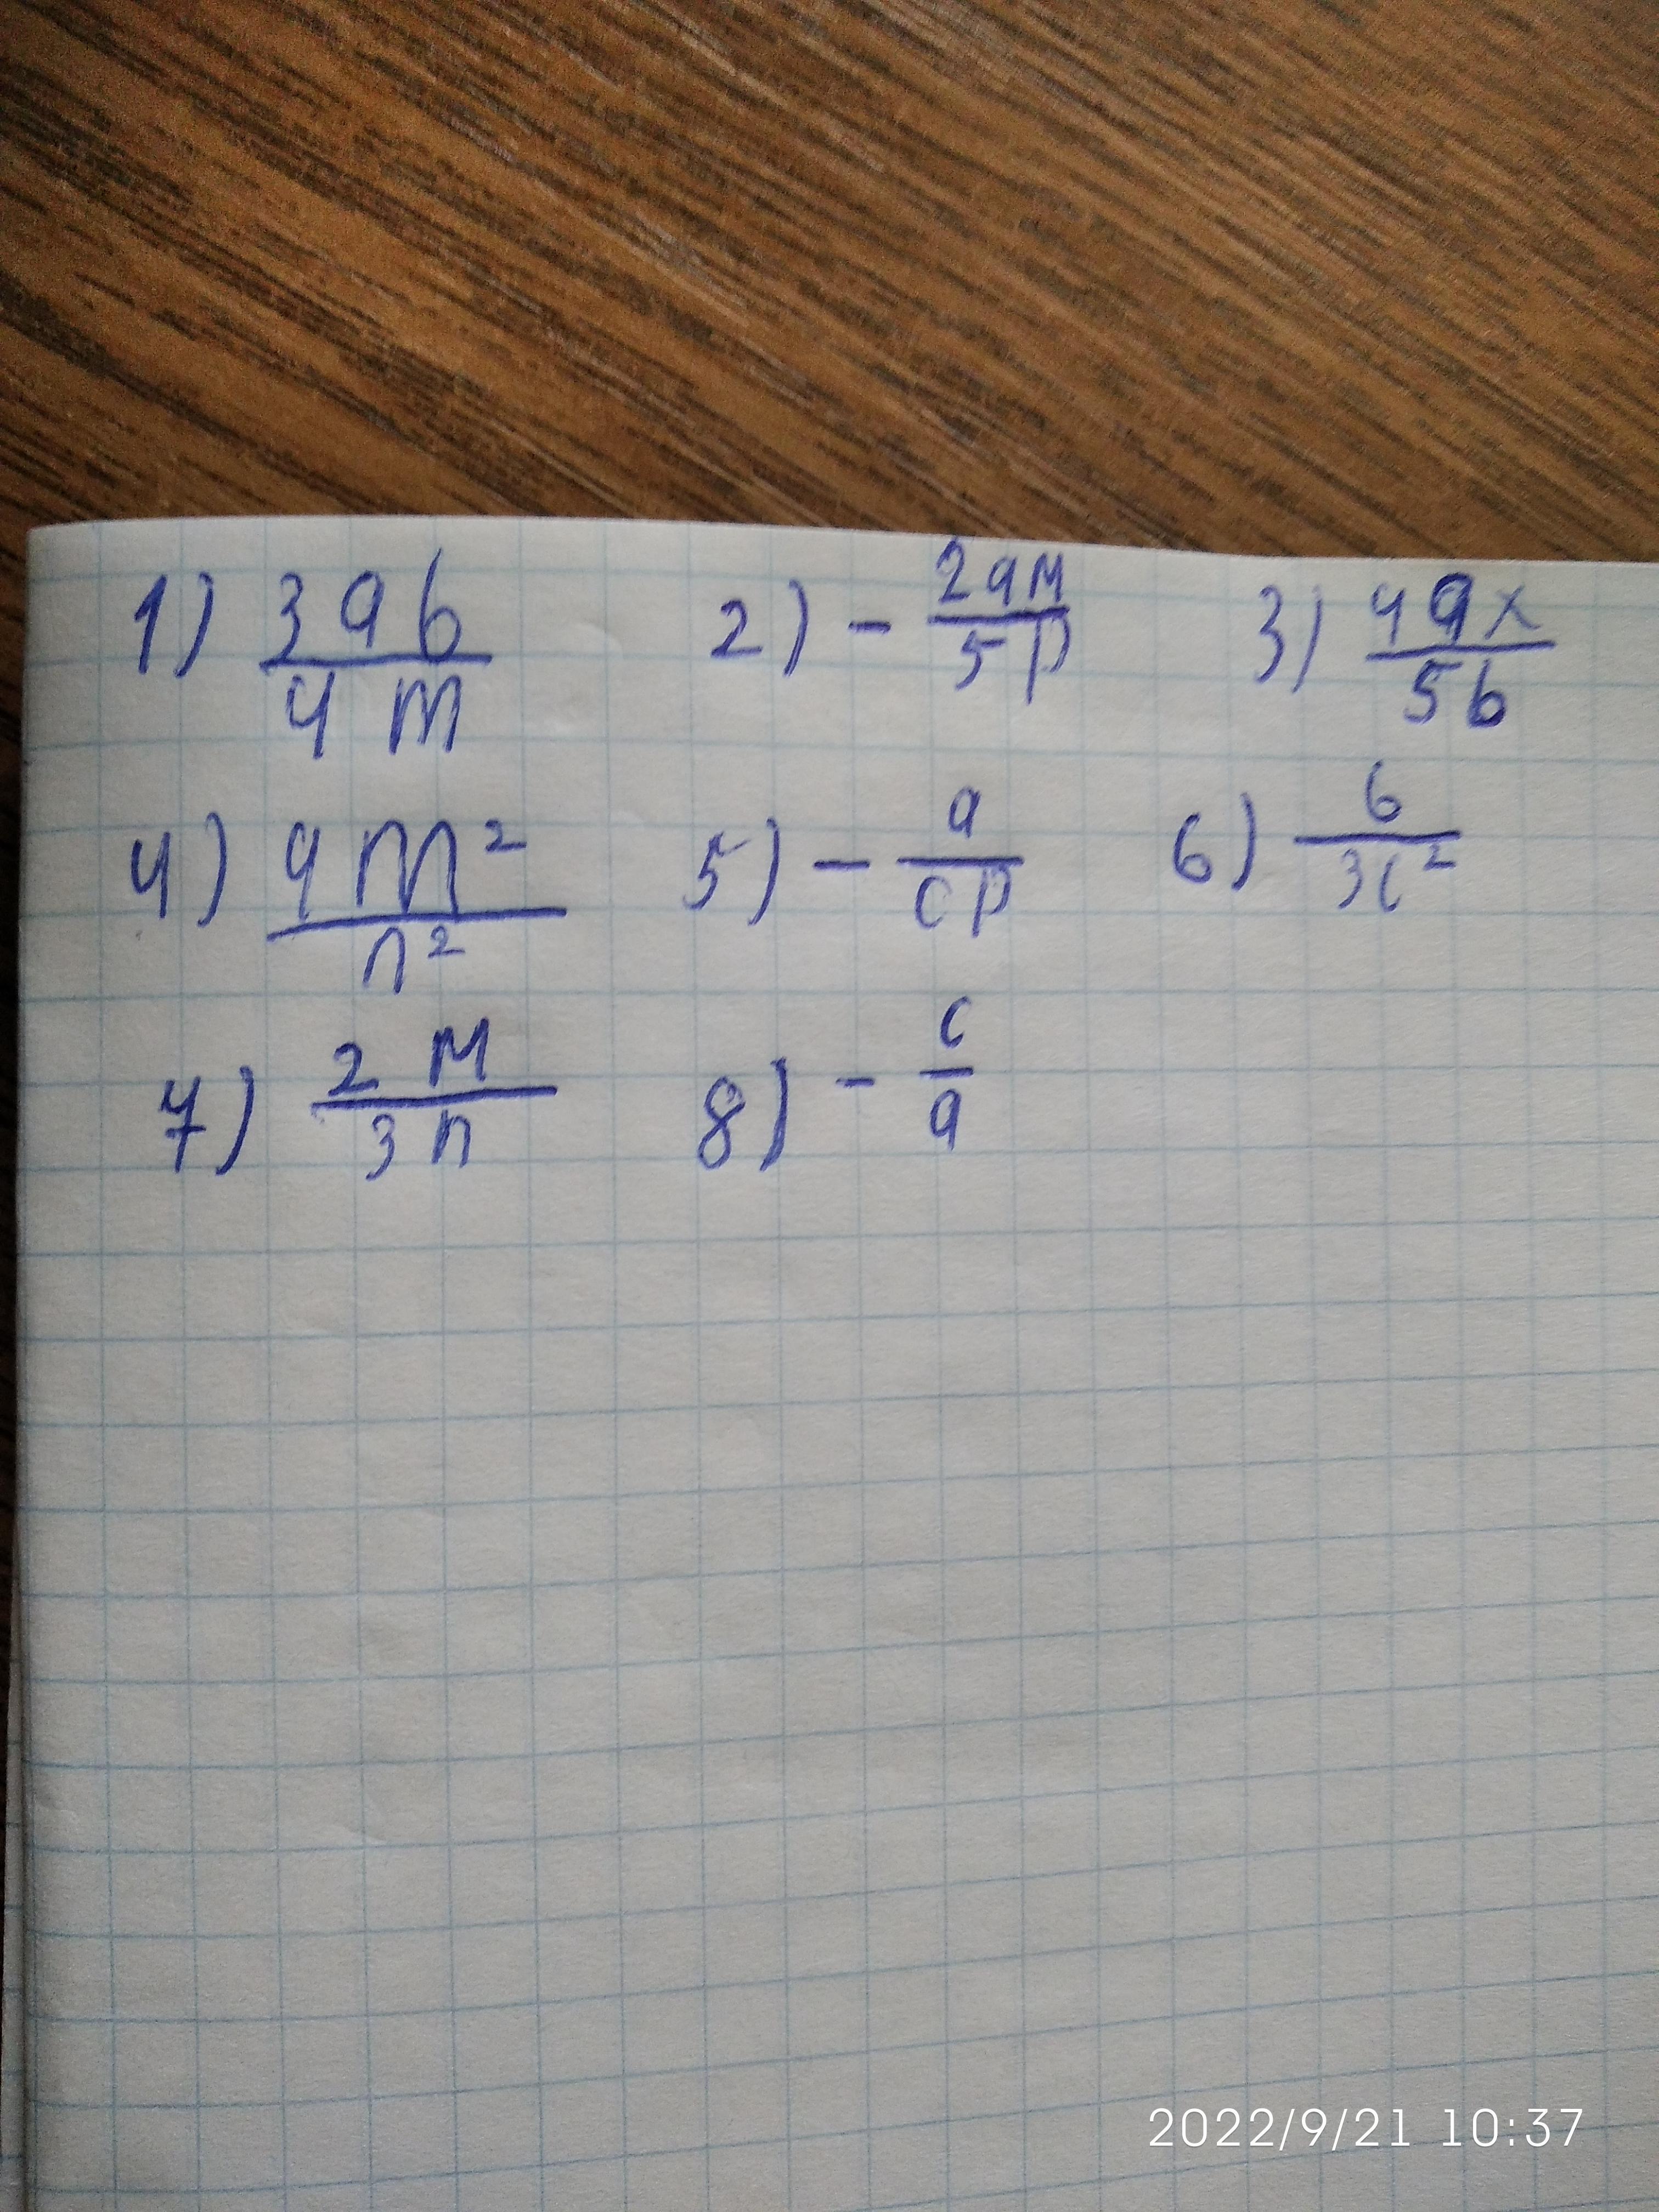 1) 3ab/4m 2) - 2am/5p 3) 4ax/5b
4) 9m²/n² 5) - a/cp 6) b/3c²
7) 2m/3n 8) - c/a
2022/9/21 10:37